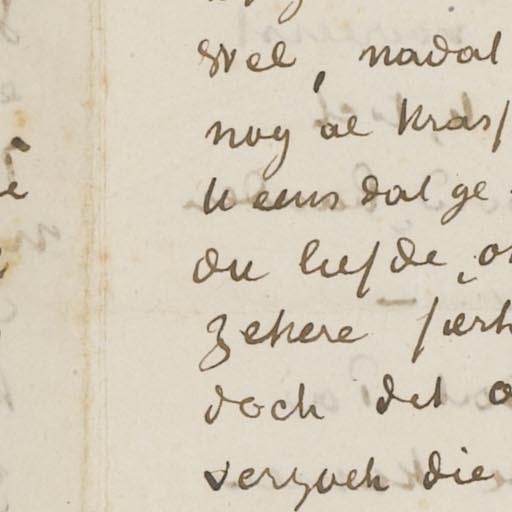 Wel, nadat
nog al kras
U eens dat ge
du liefde, o
zekere sterk
doch det o
verzoek die